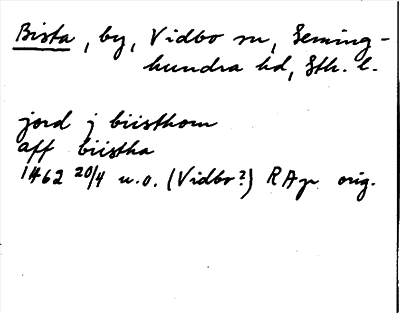 Bista, by, Vidbo sn, Seming-
hundra hd, Sth. l.
jord j biisthom
aff biistha
1462 20/4 u.o. (Vidbo?) RAp orig.